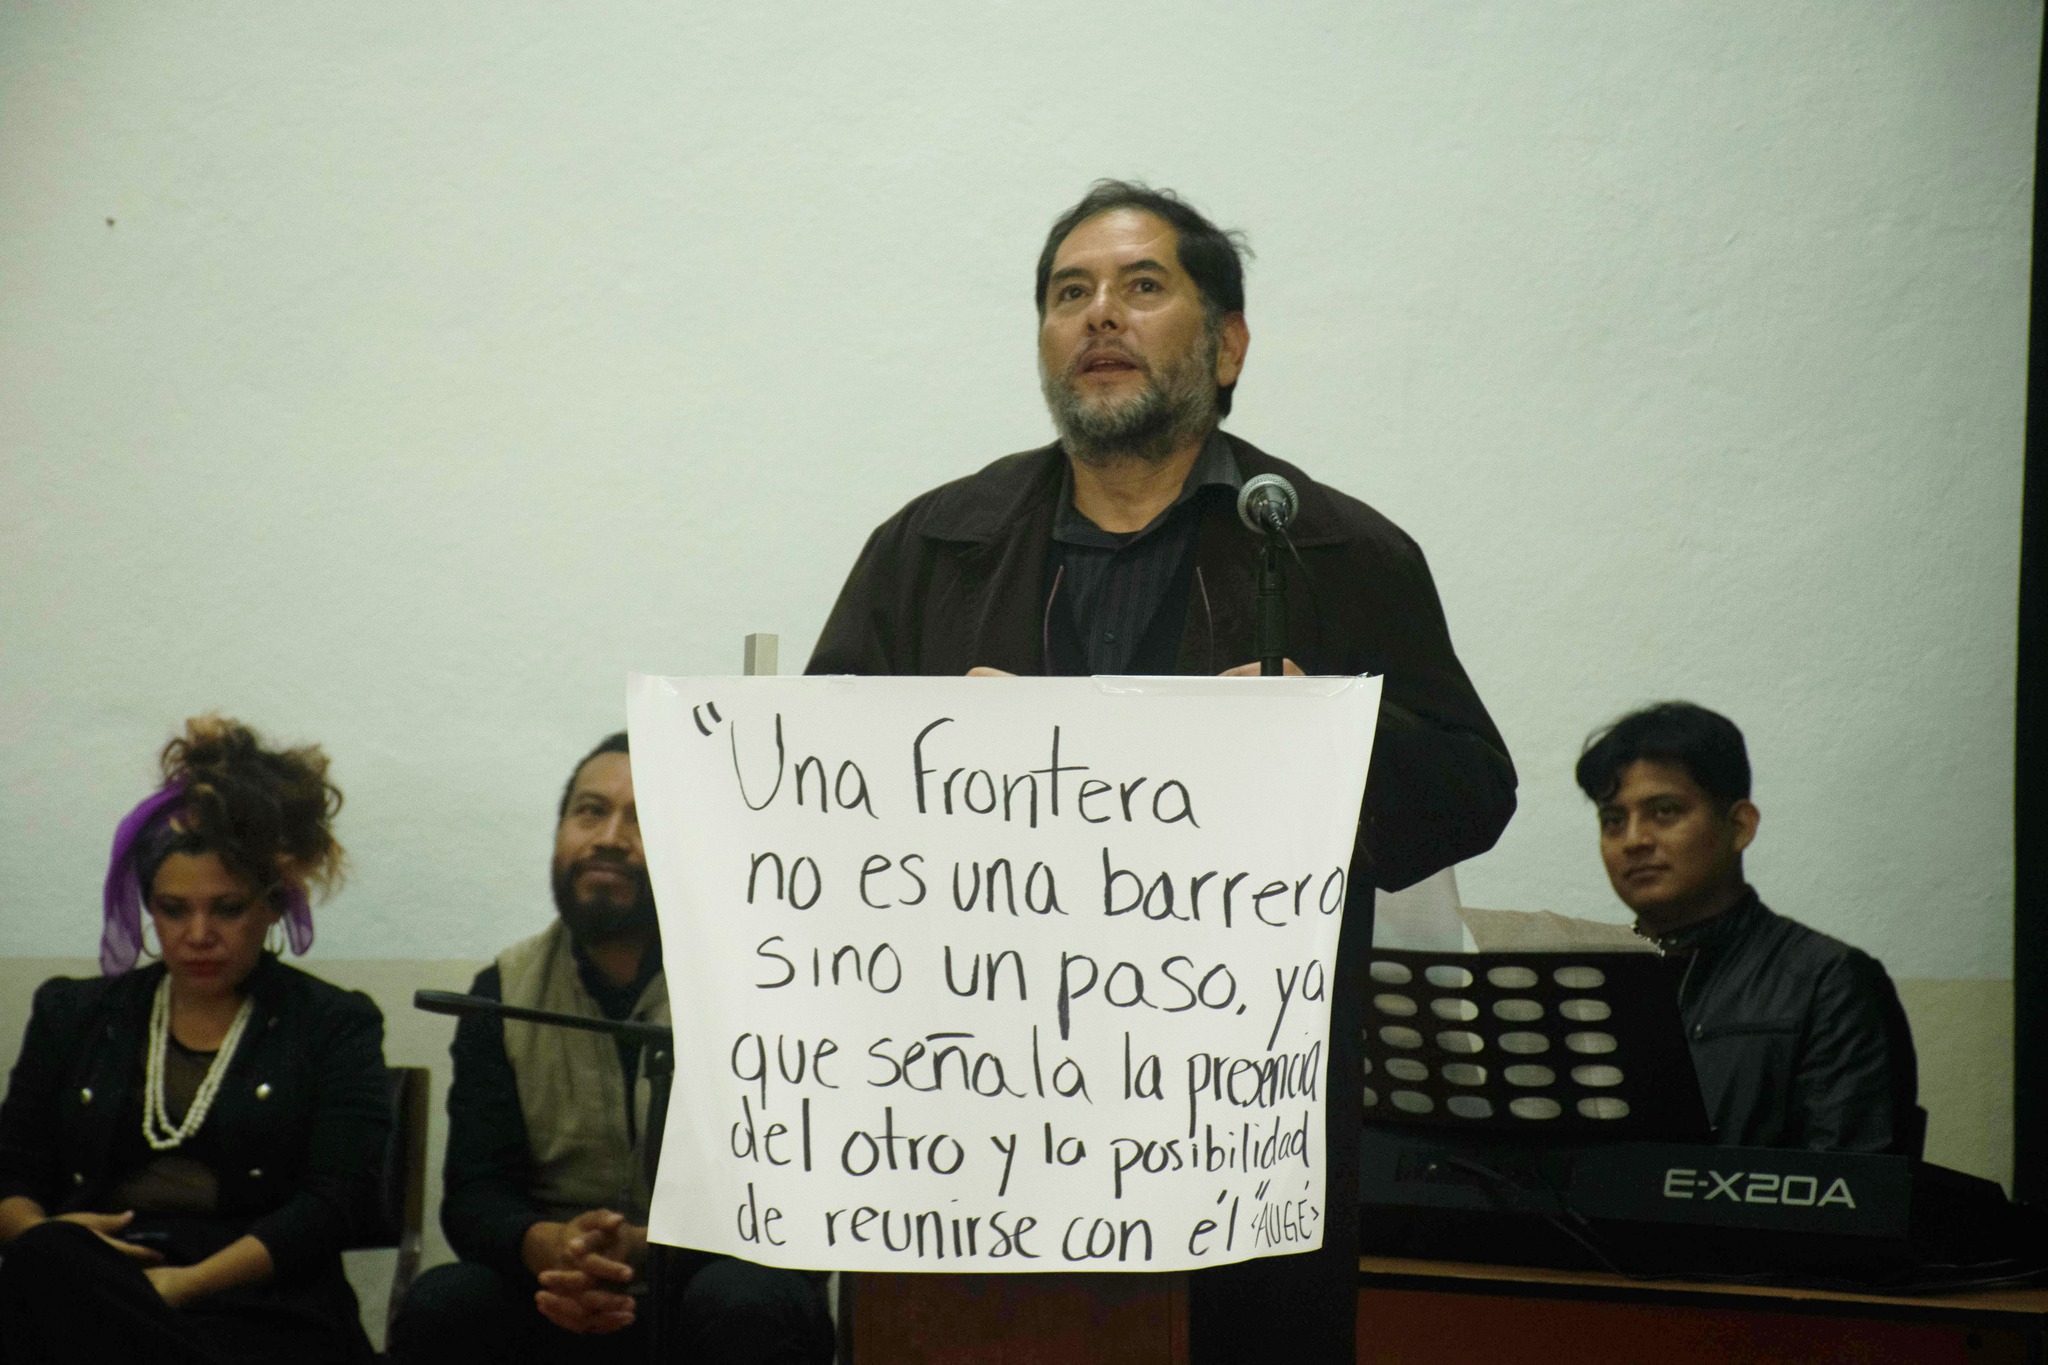 "Una Frontera
no es una barrera
sino un paso, ya
que señala la presencia
del otro y la posibilidad
de reunirse con él" <AUGÉ>
E-X20A